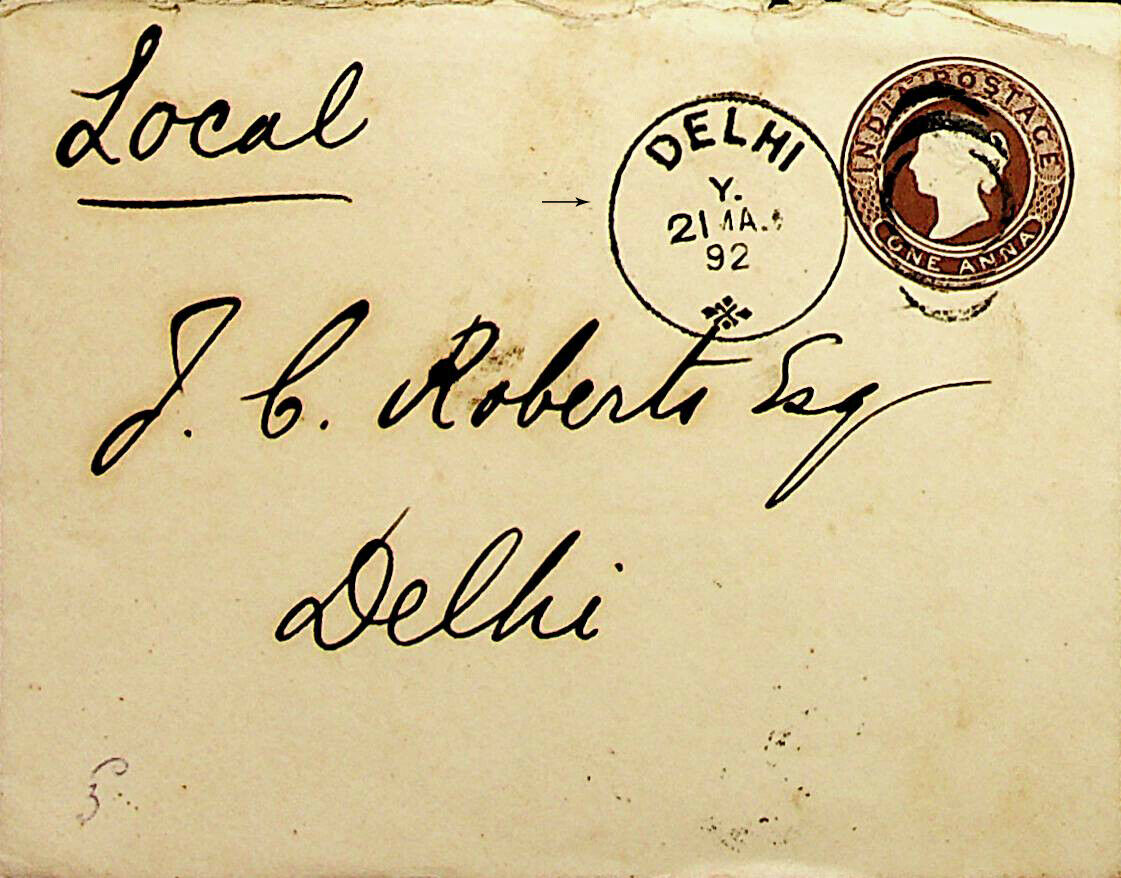 Local
DELHI
Y.
21 MA
92
INDIA POSTAGE
ONE ANNA
J. C. Roberts Esq
Delhi